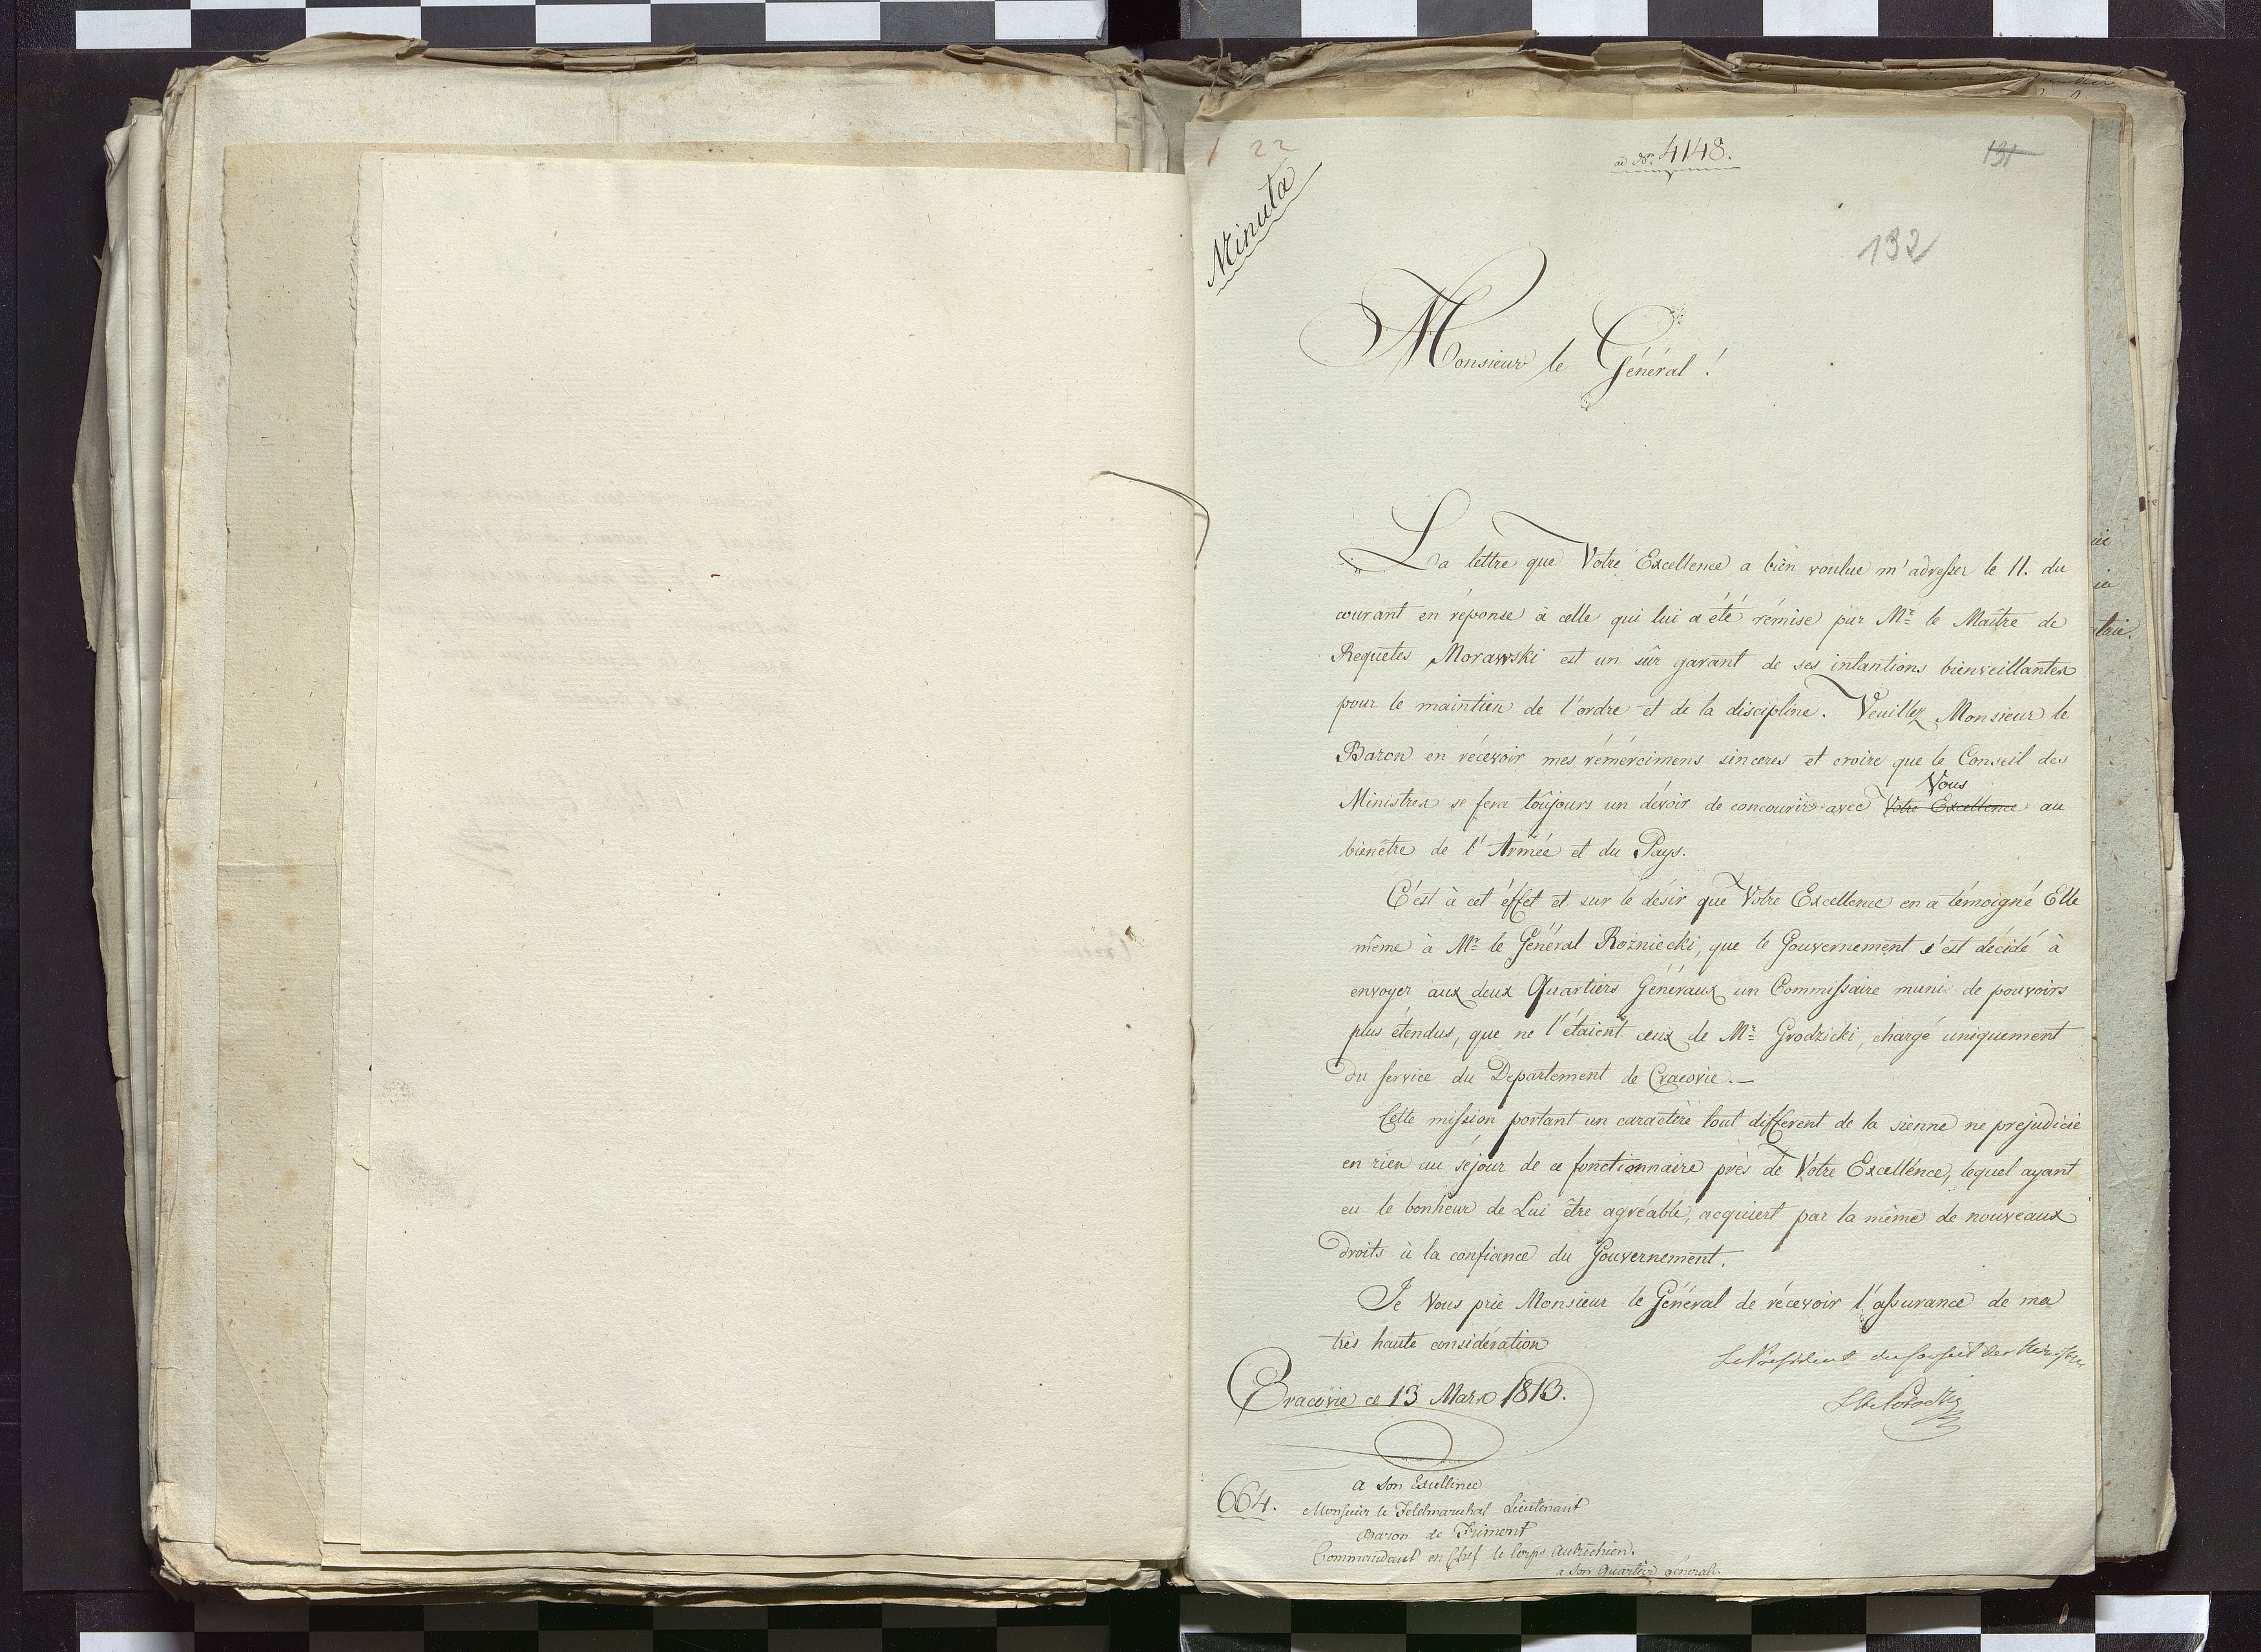 22
ad Nrm 4148.
131
Minuta
132
Monsieur le Général!
La lettre que Votre Excellence a bien voulue m'adresser le 11. du
courant en réponse à celle qui lui a été rémise par Mr. le Maître de
Requetes Morawski est un sûr garant de ses intantions bienveillantes
pour le maintien de l'ordre et de la discipline. Veuillez Monsieur le
Baron en récevoir mes rémércimens sinceres et croire que le Conseil des
Vous
Ministres se fera toûjours un dévoir de concourir avec Votre Excellence au
bienêtre de l'Armée et du Pays.
C'est à cet éffet et sur le désir que Votre Excellence en a témoigné Elle
même à Mr. le Général Rożniecki, que le Gouvernement s'est décidé à
envoyer aux deux Quartiers Généraux un Commissaire muni de pouvoirs
plus étendus, que ne l'étaient ceux de Mr. Grodzicki, chargé uniquement
du service du Departement de Cracovie.—
Cette mission portant un caractère tout différent de la sienne ne prejudicie
en rien au séjour de ce fonctionnaire près de Votre Excellénce, lequel ayant
eu le bonheur de Lui être agréable, acquiert par la même de nouveaux
droits à la confiance du Gouvernement.
Je Vous prie Monsieur le Général de récevoir l'assurance de ma
très haute considération
Le President du Conseil des Ministres
Cracovie ce 13 Mars 1813.
a Son Excellence
664.
Monsieur le Feldmarechal Lieutenant
Baron de Frimont
Commandant en Chef le Corps Autrichien.
a Son Quartier général.